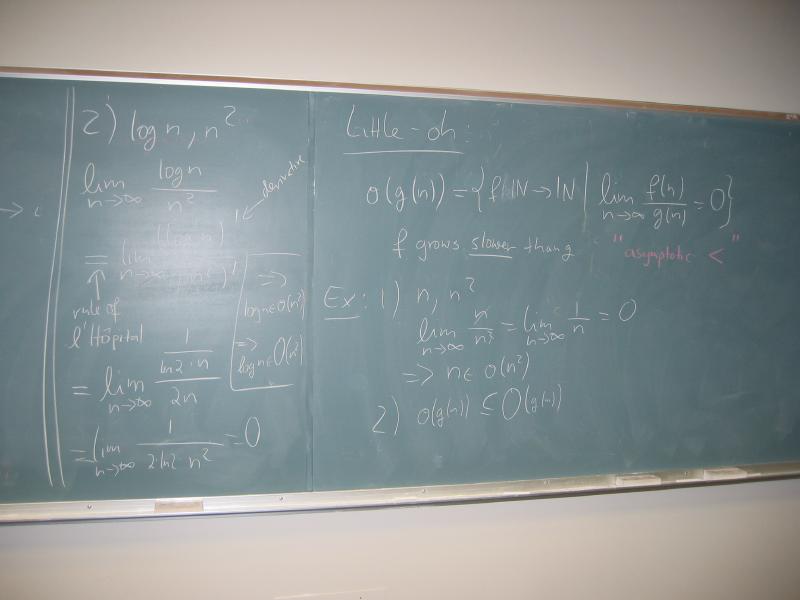 2) log n, n²
lim n→∞ log n / n²
derivative
= lim n→∞ (log n)' / (n²)'
rule of
l'Hôpital
= lim n→∞ (1 / (ln2 · n)) / 2n
= lim n→∞ 1 / (2·ln2·n²) = 0
=>
log n ∈ o(n²)
=>
log n ∈ O(n²)
Little-oh:
o(g(n)) = {f: ℕ → ℕ | lim n→∞ f(n)/g(n) = 0}
f grows slower than g
"asymptotic <"
Ex: 1) n, n²
lim n→∞ n/n² = lim n→∞ 1/n = 0
=> n ∈ o(n²)
2) o(g(n)) ⊆ O(g(n))